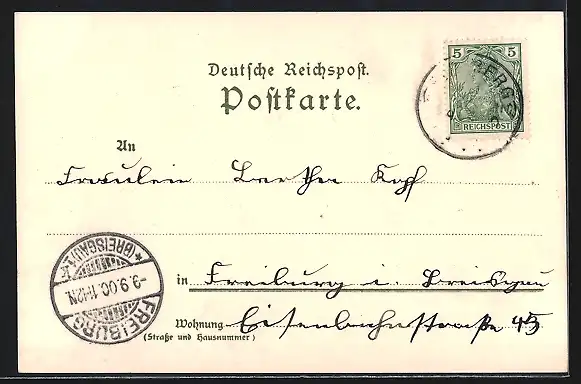 Deutsche Reichspost.
Postkarte.
5 5
REICHSPOST
An
Fraulein Bertha Kopf
in Freiburg i. Breisgau
Wohnung Eisenbahnstraße 45
(Straße und Hausnummer)
FREIBURG
-3.9.00.11-12N.
* (BREISGAU) 1.k